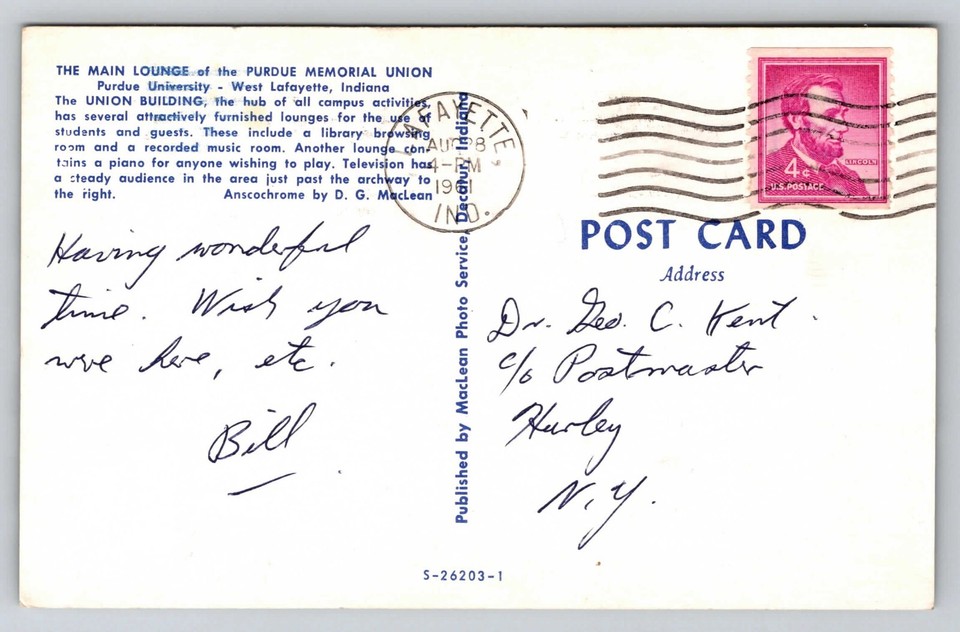 THE MAIN LOUNGE of the PURDUE MEMORIAL UNION
Purdue University - West Lafayette, Indiana
The UNION BUILDING, the hub of all campus activities,
has several attractively furnished lounges for the use of
students and guests. These include a library browsing
room and a recorded music room. Another lounge con-
tains a piano for anyone wishing to play. Television has
a steady audience in the area just past the archway to
the right. Anscochrome by D. G. MacLean
Having wonderful
time. Wish you
were here, etc.
Bill
Published by MacLean Photo Service, Decatur, Indiana
LAFAYETTE
AUG 28
4-PM
1961
IND.
4¢
LINCOLN
U.S. POSTAGE
POST CARD
Address
Dr. Geo. C. Kent
c/o Postmaster
Hurley
N.Y.
S-26203-1